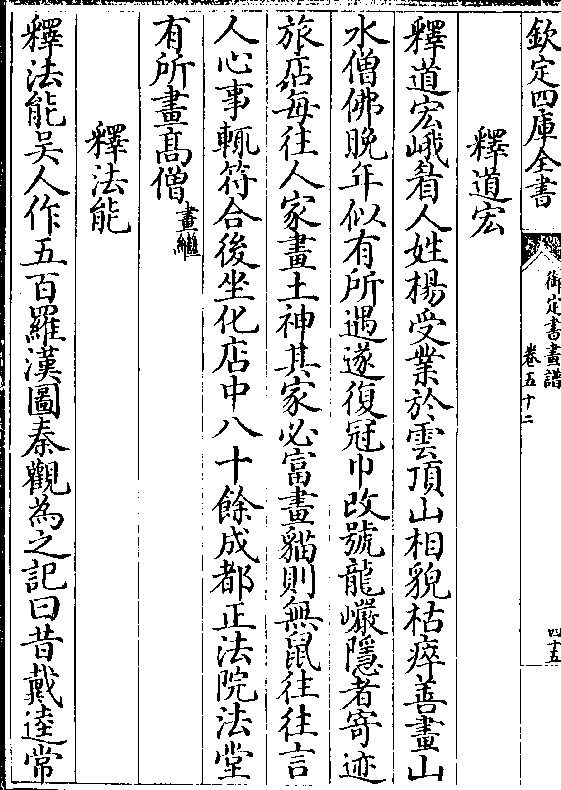 欽定四庫全書
御定書畫譜
卷五十二
四十五
釋道宏
釋道宏峨眉人姓楊受業於雲頂山相貌枯瘁善畫山
水僧佛晚年似有所遇遂復冠巾改號龍巖隱者寄迹
旅店每往人家畫土神其家必富畫貓則無鼠往往言
人心事輒符合後坐化店中八十餘成都正法院法堂
有所畫髙僧畫繼
釋法能
釋法能吳人作五百羅漢圖秦觀為之記曰昔戴逵常